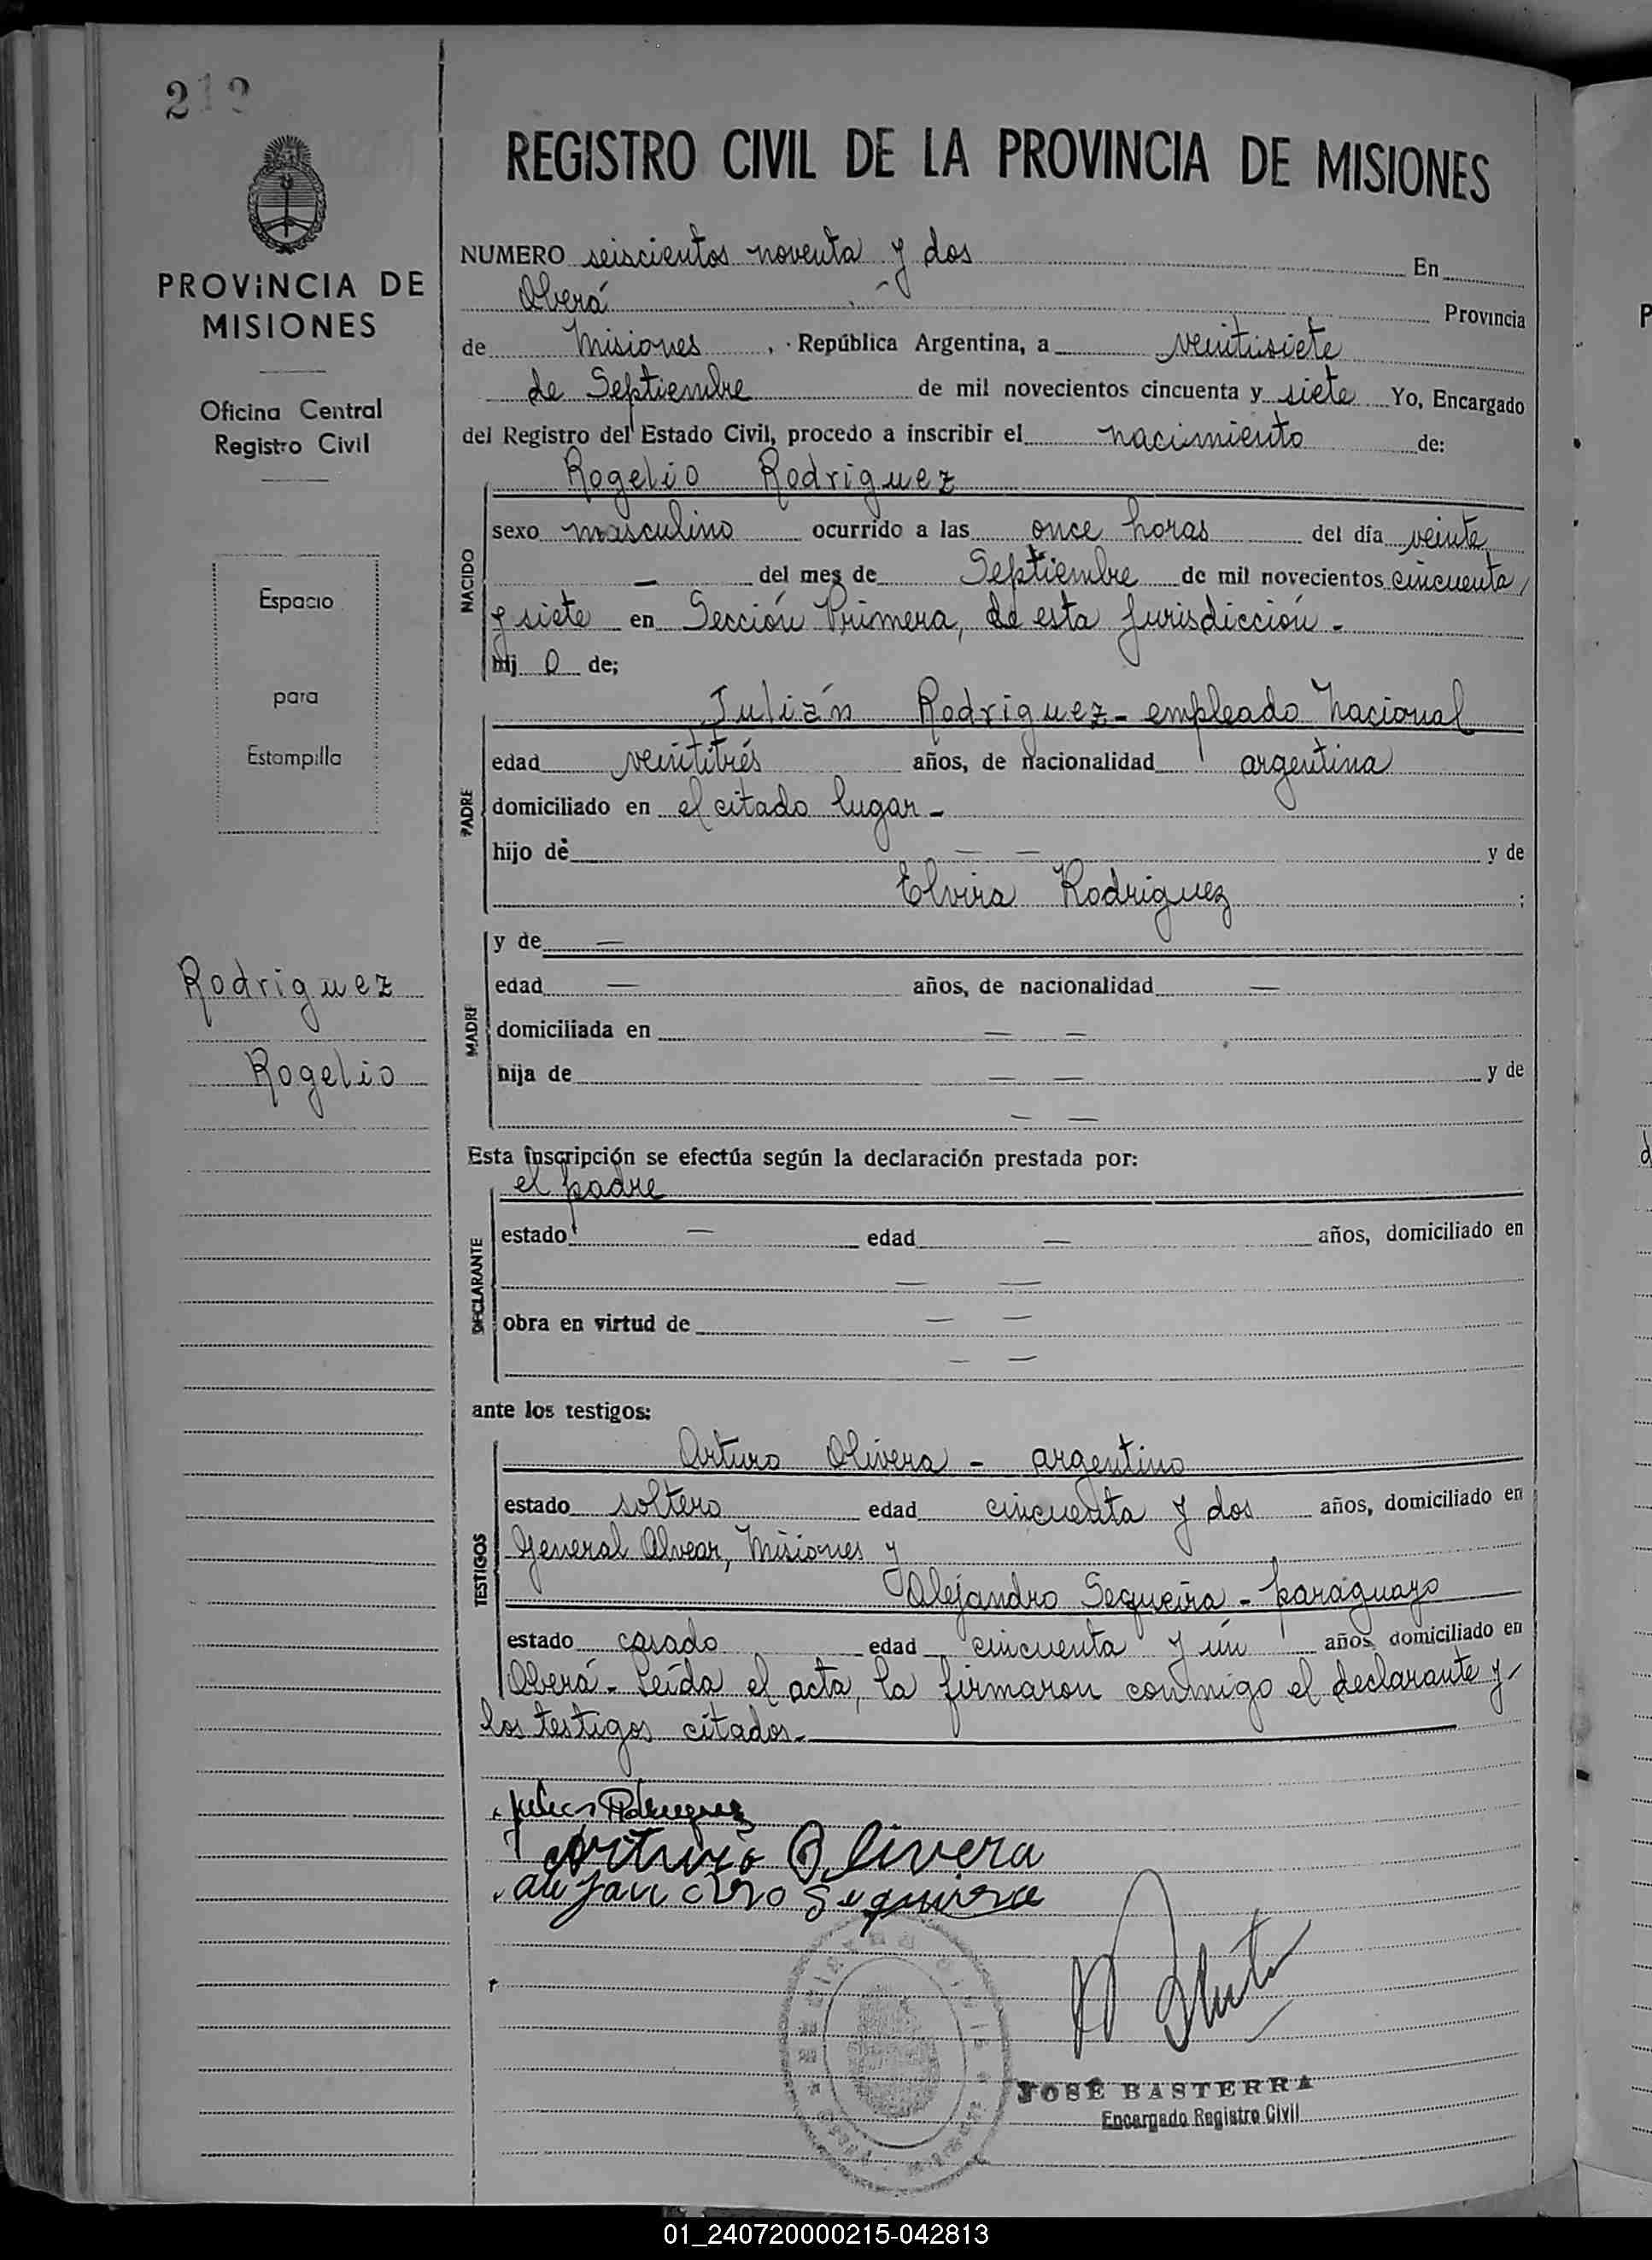 212
REGISTRO CIVIL DE LA PROVINCIA DE MISIONES
PROVINCIA DE
MISIONES
Oficina Central
Registro Civil
Espacio
para
Estampilla
Rodriguez
Rogelio
NUMERO seiscientos noventa y dos En
Oberá Provincia
de Misiones, República Argentina, a veintisiete
de Septiembre de mil novecientos cincuenta y siete Yo, Encargado
del Registro del Estado Civil, procedo a inscribir el nacimiento de:
NACIDO
Rogelio Rodriguez
sexo masculino ocurrido a las once horas del día veinte
— del mes de Septiembre de mil novecientos cincuenta
y siete en Sección Primera, de esta Jurisdicción -
hij o de;
PADRE
Julián Rodriguez - empleado Nacional
edad veintitrés años, de nacionalidad argentina
domiciliado en el citado lugar -
hijo de — — y de
Elvira Rodriguez ;
MADRE
y de —
edad — años, de nacionalidad —
domiciliada en — —
hija de — — y de
— —
Esta inscripción se efectúa según la declaración prestada por:
DECLARANTE
el padre
estado — edad — años, domiciliado en
— —
obra en virtud de — —
— —
ante los testigos:
TESTIGOS
Arturo Olivera - argentino
estado soltero edad cincuenta y dos años, domiciliado en
General Alvear, Misiones y
Alejandro Sequeira - paraguayo
estado casado edad cincuenta y un años, domiciliado en
Oberá - Leída el acta, la firmaron conmigo el declarante y
los testigos citados.-
Arturo Olivera
JOSÉ BASTERRA
Encargado Registro Civil
01_240720000215-042813